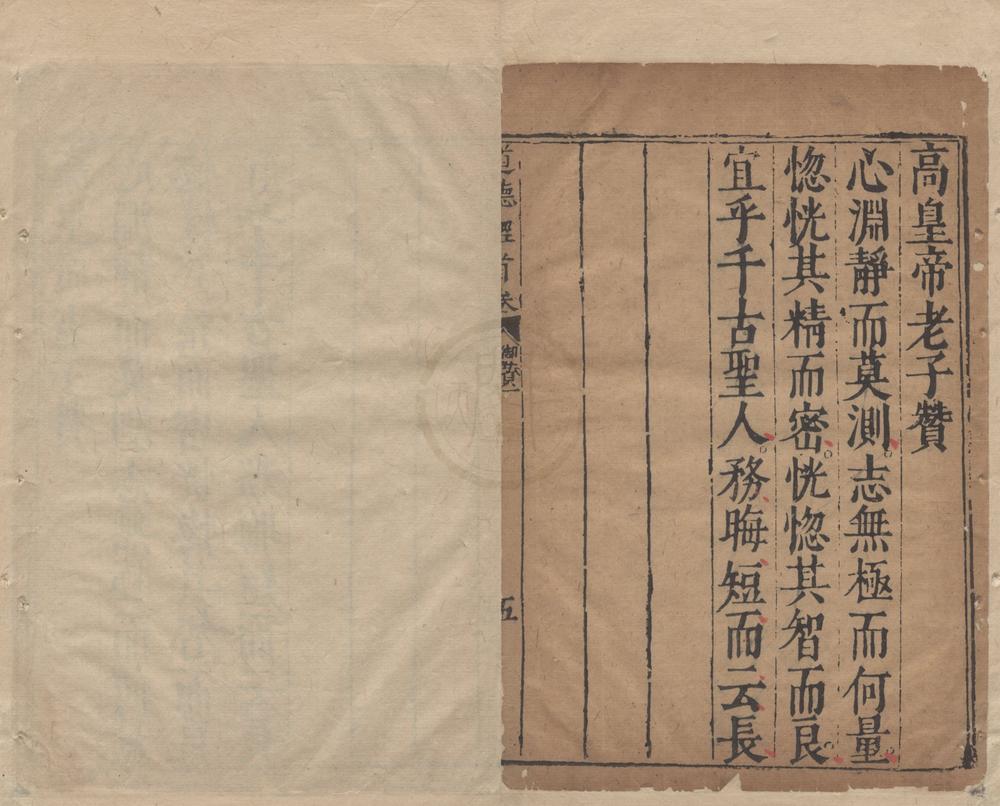 高皇帝老子贊
心淵靜而莫測志無極而何量
惚恍其精而密恍惚其智而良
宜乎千古聖人務晦短而云長
道德經首卷 御贊一 五